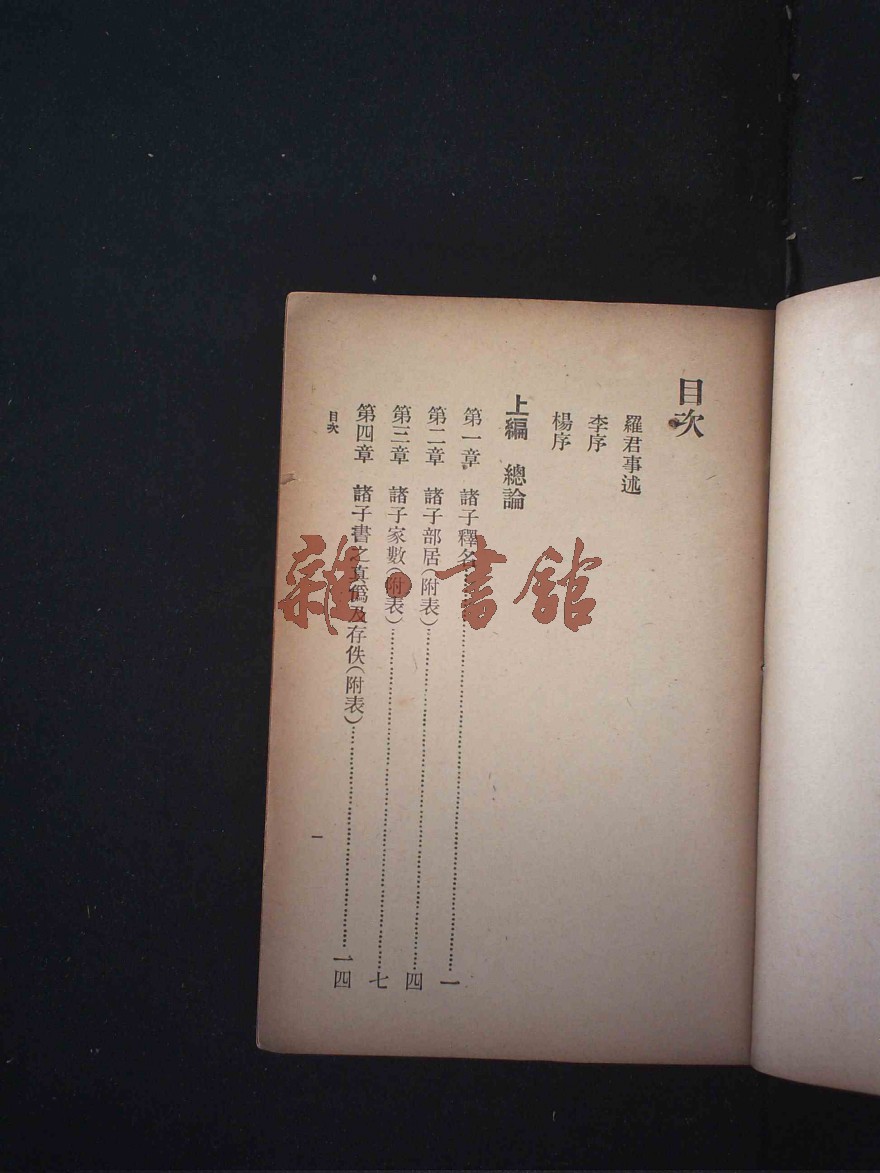 目次
羅君事述
李序
楊序
上編 總論
第一章 諸子釋名……一
第二章 諸子部居(附表)……四
第三章 諸子家數(附表)……七
第四章 諸子書之真僞及存佚(附表)……一四
目次
一
雜·書舘